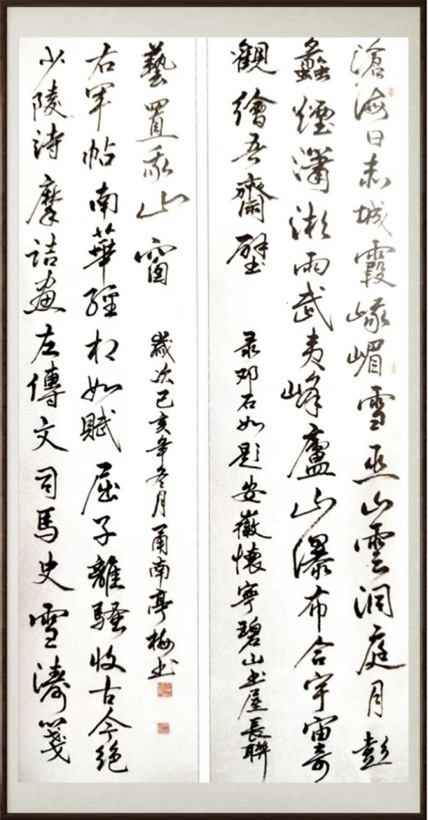 滄海日赤城霞峨嵋雪巫山雲洞庭月彭
蠡煙瀟湘雨武夷峰廬山瀑布合宇宙奇
觀繪吾齋壁
录邓石如题安徽懷寧碧山书屋長聯
少陵诗摩詰畫左傳文司馬史雪濤箋
右军帖南華經相如賦屈子離騷收古今绝
藝置我山窗
歲次己亥年冬月甬南亭梅书